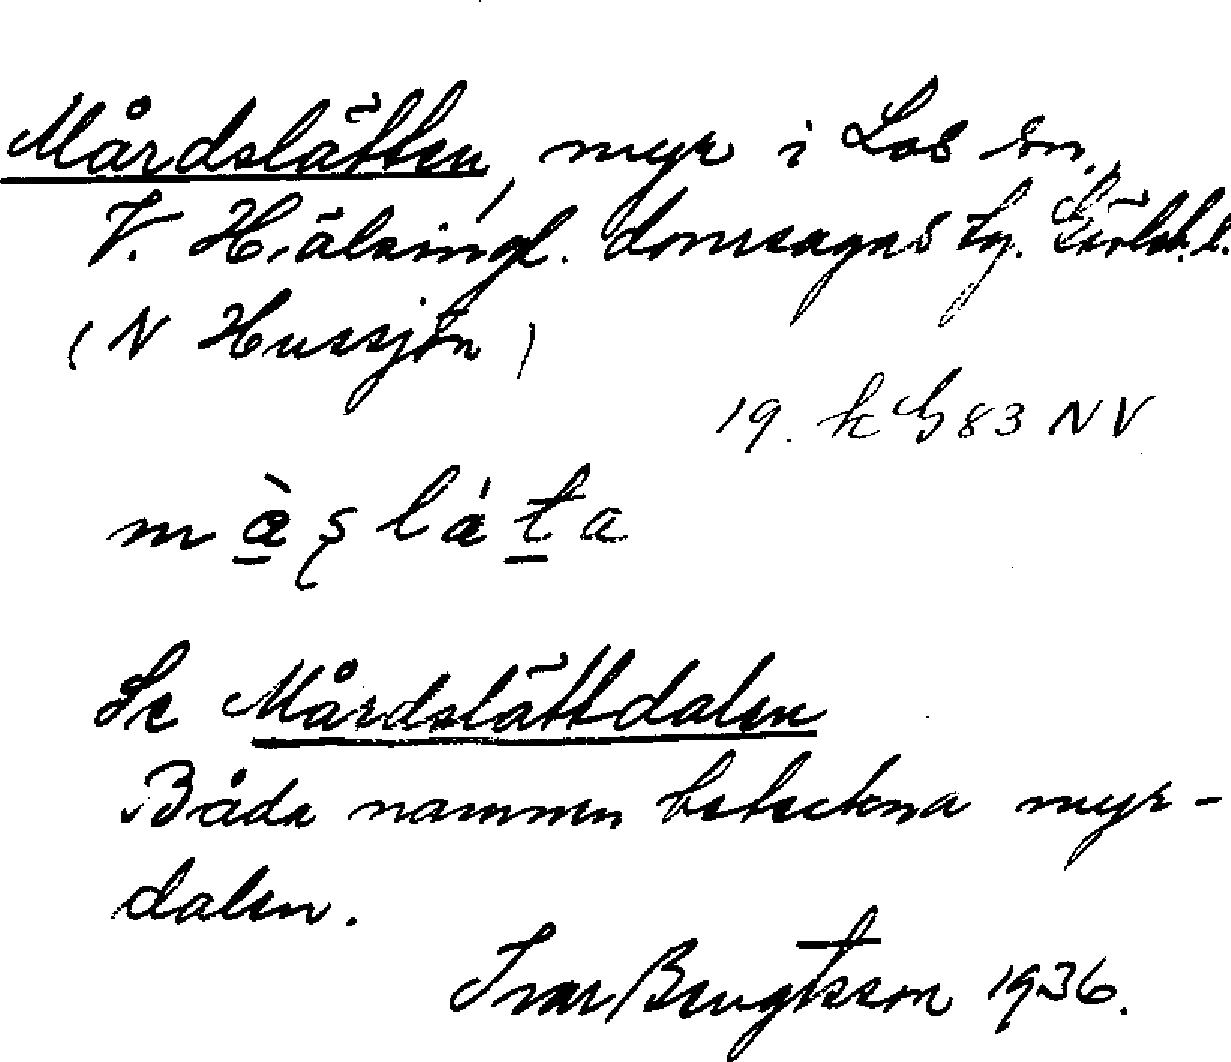 Mårdslätten, myr i Los sn,
V. Hälsingl. domsagas tg. Gävleb. l.
(N Hussjön)
19. k h 83 NV
m æ̀ ş l á t a
Se Mårdslättdalen
Båda namnen beteckna myr-
dalen.
Ivar Bengtsson 1936.